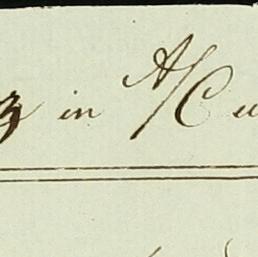 in A/Cu